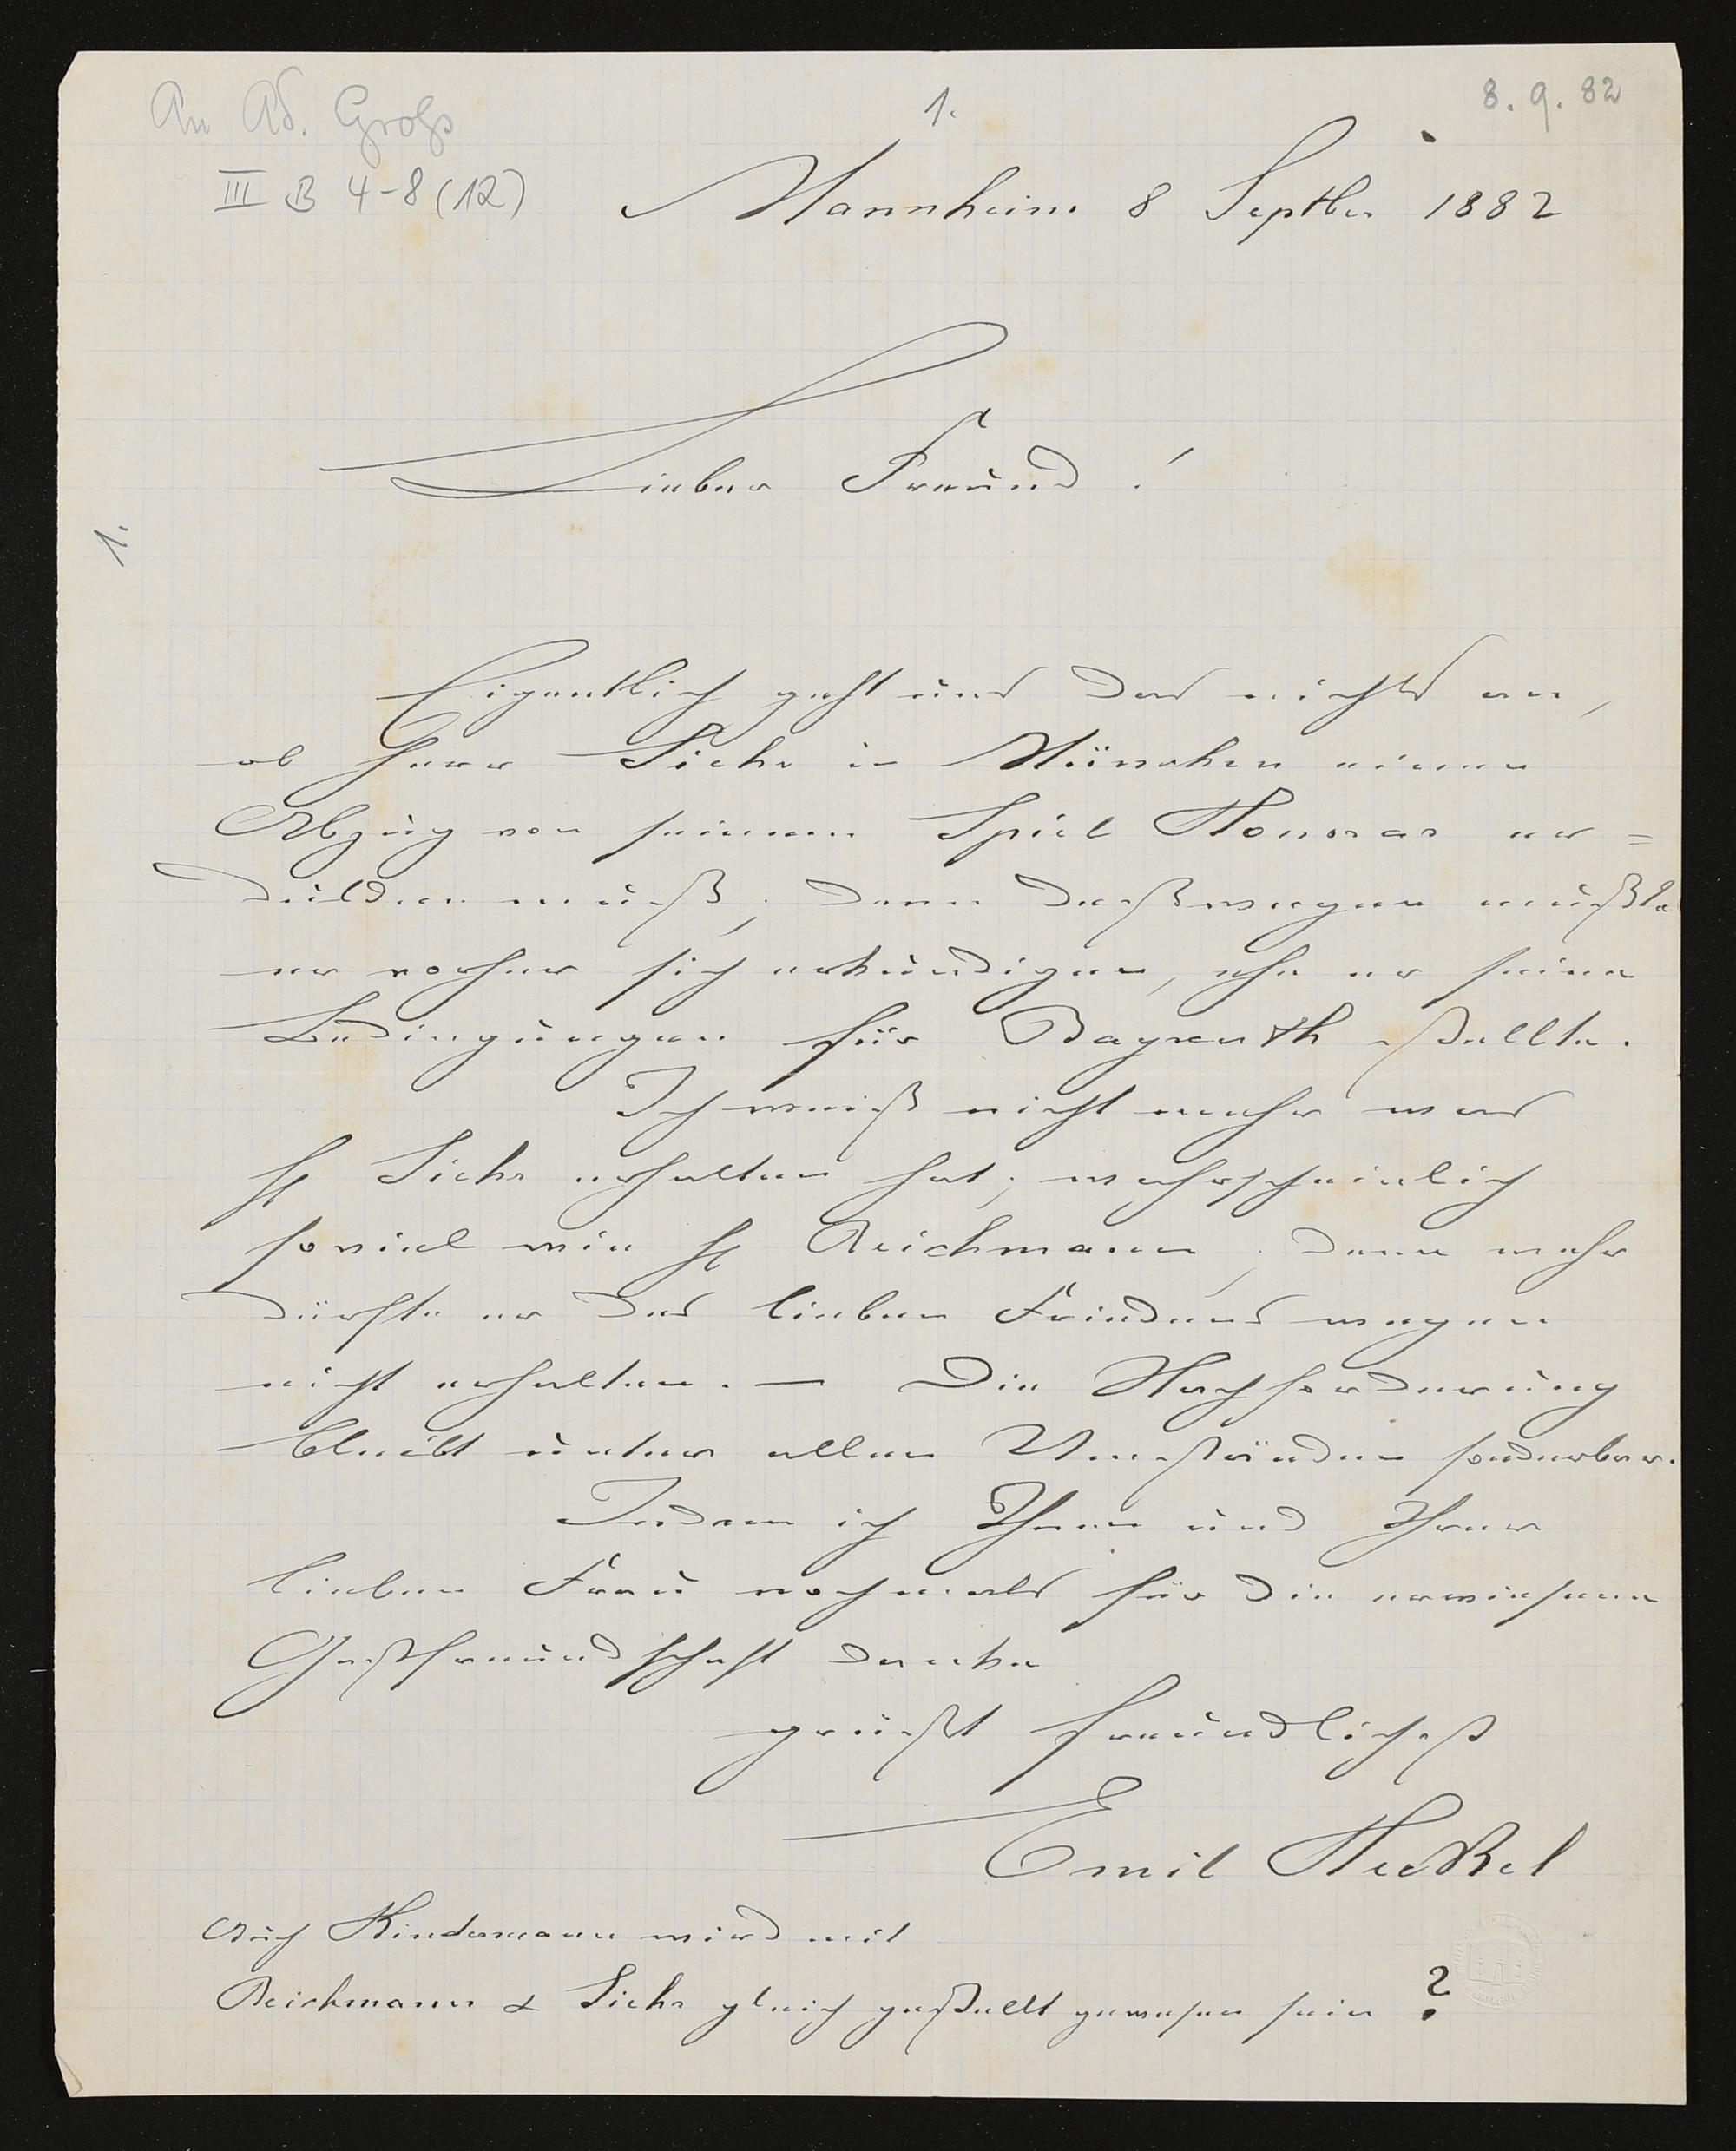 An Ad. Groß
1.
8. 9. 82
III B 4-8 (12)
Mannheim 8 Septber 1882
Lieber Freund!
1.
Eigentlich geht uns das nichts an,
ob Herr Siehr in München einen
Abzug von seinem Spiel Honorar er=
dulden muß, denn deßwegen mußte
er vorher sich erkundigen, ehe er seine
Bedingungen für Bayreuth stellte.
Ich weiß nicht mehr was
H Siehr erhalten hat; wahrscheinlich
soviel wie H Reichmann, denn mehr
dürfte er des lieben Friedens wegen
nicht erhalten. — Die Nachforderung
bleibt unter allen Umständen sonderbar.
Indem ich Ihnen und Ihrer
lieben Frau nochmals für die erwiesene
Gastfreundschaft danke
grüßt freundlichst
Emil Heckel
Auch Kindermann wird mit
Reichmann & Siehr gleich gestellt gewesen sein ?